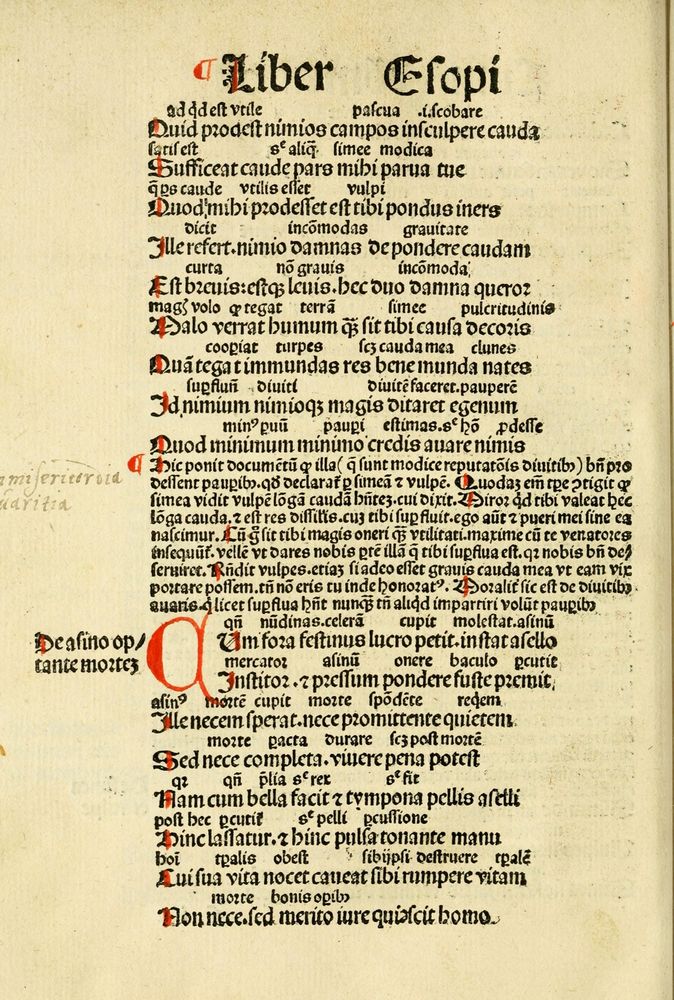 ¶ Liber Esopi
ad qd est vtile pascua .i. scobare
Quid prodest nimios campos insculpere cauda
satis est sᵉ aliq̄ simee modica
Sufficeat caude pars mihi parua tue
caude vtilis esset vulpi
Quod mihi prodesset est tibi pondus iners
dicit incōmodas grauitate
Ille refert.nimio damnas de pondere caudam
curta nō grauis incōmoda
Est breuis:estqȝ leuis.hec duo damna queror
magꝭ volo ꝙ tegat terrā simee pulcritudinis
Malo verrat humum q̄ȝ sit tibi causa decoris
cooꝑiat turpes scȝ cauda mea clunes
Quā tegat immundas res bene munda nates
suꝑfluū diuiti diuitē faceret.pauperē
Id nimium nimioqȝ magis ditaret egenum
minꝰ ꝑuū pauꝑi estimas.sᵉ hō ꝓdesse
Quod minimum minimo credis auare nimis
¶ Hic ponit documētū ꝙ illa (q̄ sunt modice reputatōnis diuitibꝰ) bn̄ pro
dessent pauꝑibꝰ.qd̓ declarat̄ ꝑ simeā ⁊ vulpē. Quodaȝ em̄ tꝑe ꝯtigit ꝙ
simea vidit vulpē lōgā caudā hn̄teȝ.cui dixit. Miror qd tibi valeat hec
lōga cauda.⁊ est res dissilis.cuȝ tibi suꝑfluit.ego aūt ⁊ pueri mei sine ea
nascimur. Cū ḡ sit tibi magis oneri q̄ȝ vtilitati.maxime cū te venatores
insequūt̄.vellē vt dares nobis ꝑtē illā q̄ tibi suꝑflua est.qꝛ nobis bn̄ de/
seruiret. Rn̄dit vulpes.etiaȝ si adeo esset grauis cauda mea vt eam vix
portare possem.tn̄ nō eris tu inde honoratꝰ. Moralit̄ sic est de diuitibꝰ
auaris.q̇ licet suꝑflua hn̄t nunq̄ȝ tn̄ aliqd impartiri volūt pauꝑibꝰ
qn̄ nūdinas.celerā cupit molestat.asinū
De asino op/
tante morteȝ
Cum fora festinus lucro petit.instat asello
mercator asinū onere baculo ꝑcutit
Institor.⁊ pressum pondere fuste premit
asinꝰ mortē cupit morte spōdēte reqem
Ille necem sperat.nece promittente quietem
morte ꝑacta durare scȝ post mortē
Sed nece completa.viuere pena potest
qꝛ qn̄ p̄lia sᵉ rex sᵉ fit
Nam cum bella facit ⁊ tympona pellis aselli
post hec ꝑcutit̄ sᵉ pelli ꝑcussione
Hinc lassatur.⁊ hinc pulsa tonante manu
hoī tꝑalis obest sibijpsi destruere tꝑalē
Cui sua vita nocet caueat sibi rumpere vitam
morte bonis oꝑibꝰ
Non nece.sed merito iure quiescit homo.